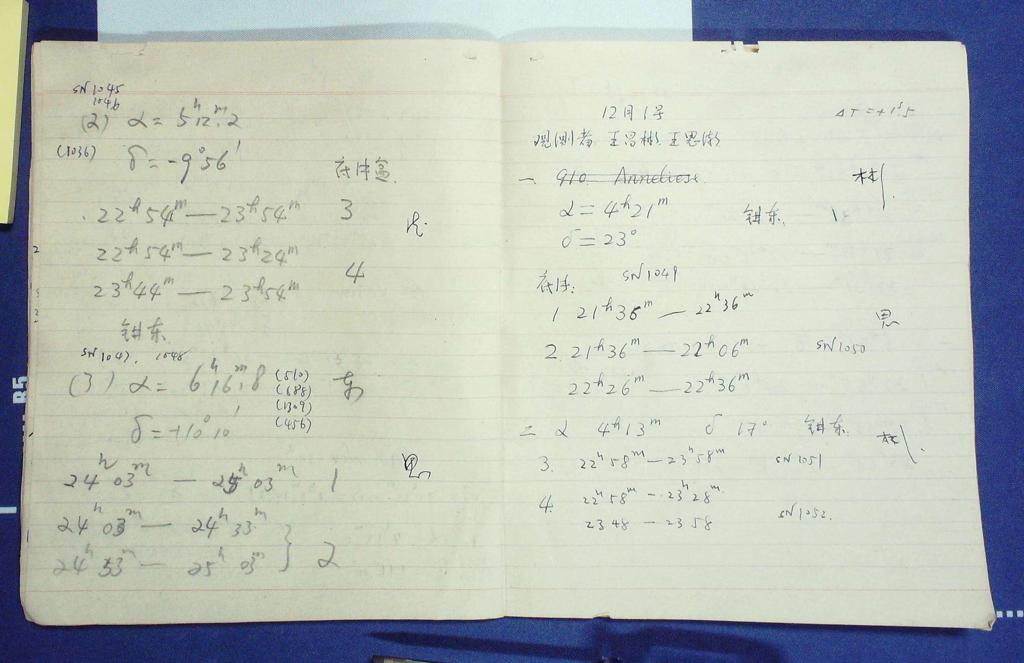 SN1045
1046
(2) α = 5ʰ12ᵐ.2
(1036) δ = -9°56′
22ʰ54ᵐ — 23ʰ54ᵐ 3
22ʰ54ᵐ — 23ʰ24ᵐ
4
23ʰ44ᵐ — 23ʰ54ᵐ
钳东
SN1047, 1048
(3) α = 6ʰ16ᵐ.8 东
(510)
(688)
(1309)
(456)
δ = +10°10′
思
24ʰ03ᵐ — 25ʰ03ᵐ 1
24ʰ03ᵐ — 24ʰ33ᵐ
24ʰ53ᵐ — 25ʰ03ᵐ } 2
12月1号 ΔT = +1ˢ.5
观测者 王昌彬 王思潮
一 910 Anneliese 彬
α = 4ʰ21ᵐ 钳东
δ = 23°
底片: SN1049
1 21ʰ36ᵐ — 22ʰ36ᵐ
思
2. 21ʰ36ᵐ — 22ʰ06ᵐ SN1050
22ʰ26ᵐ — 22ʰ36ᵐ
二 α 4ʰ13ᵐ δ 17° 钳东 彬
3. 22ʰ58ᵐ — 23ʰ58ᵐ SN1051
4. 22ʰ58ᵐ — 23ʰ28ᵐ
23 48 — 23 58 SN1052